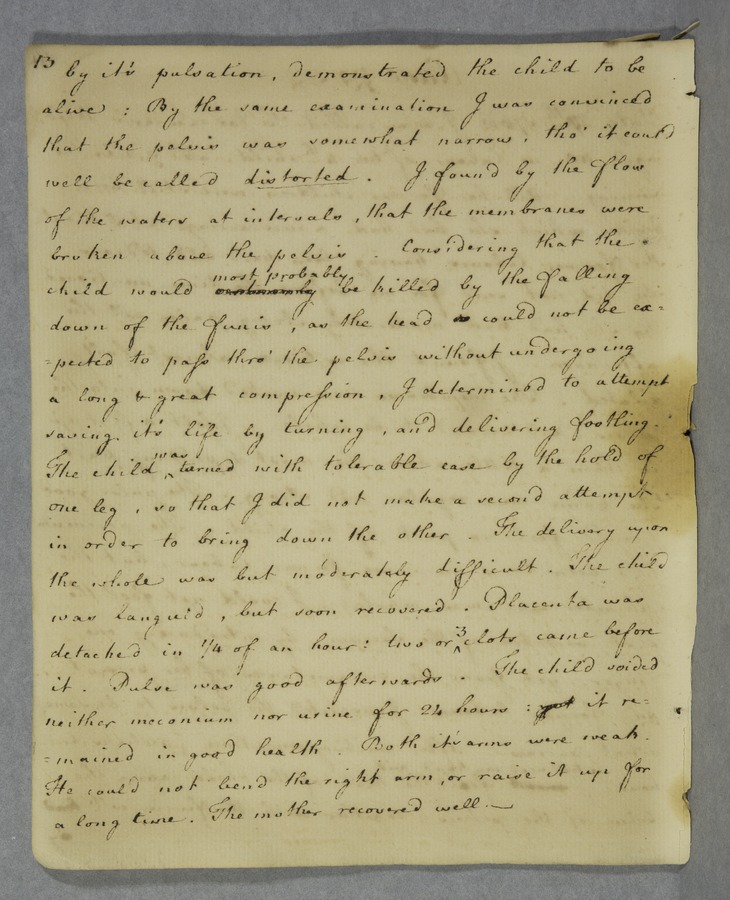 13
by it's pulsation, demonstrated the child to be
alive : By the same examination I was convinced
that the pelvis was somewhat narrow, tho' it cou'd
well be called distorted. I found by the flow
of the waters at intervals, that the membranes were
broken above the pelvis. Considering that the
most probably
child would be killed by the falling
down of the funis, as the head could not be ex=
=pected to pass thro' the pelvis without undergoing
a long & great compression, I determined to attempt
saving it's life by turning, and delivering footling.
was
The child ‸ turned with tolerable ease by the hold of
one leg, so that I did not make a second attempt
in order to bring down the other. The delivery upon
the whole was but moderately difficult. The child
was languid, but soon recovered. Placenta was
3
detached in 1/4 of an hour: two or ‸ clots came before
it. Pulse was good afterwards. The child voided
neither meconium nor urine for 24 hours : yet it re-
=mained in good health. Both it's arms were weak.
He could not bend the right arm, or raise it up for
a long time. The mother recovered well.—